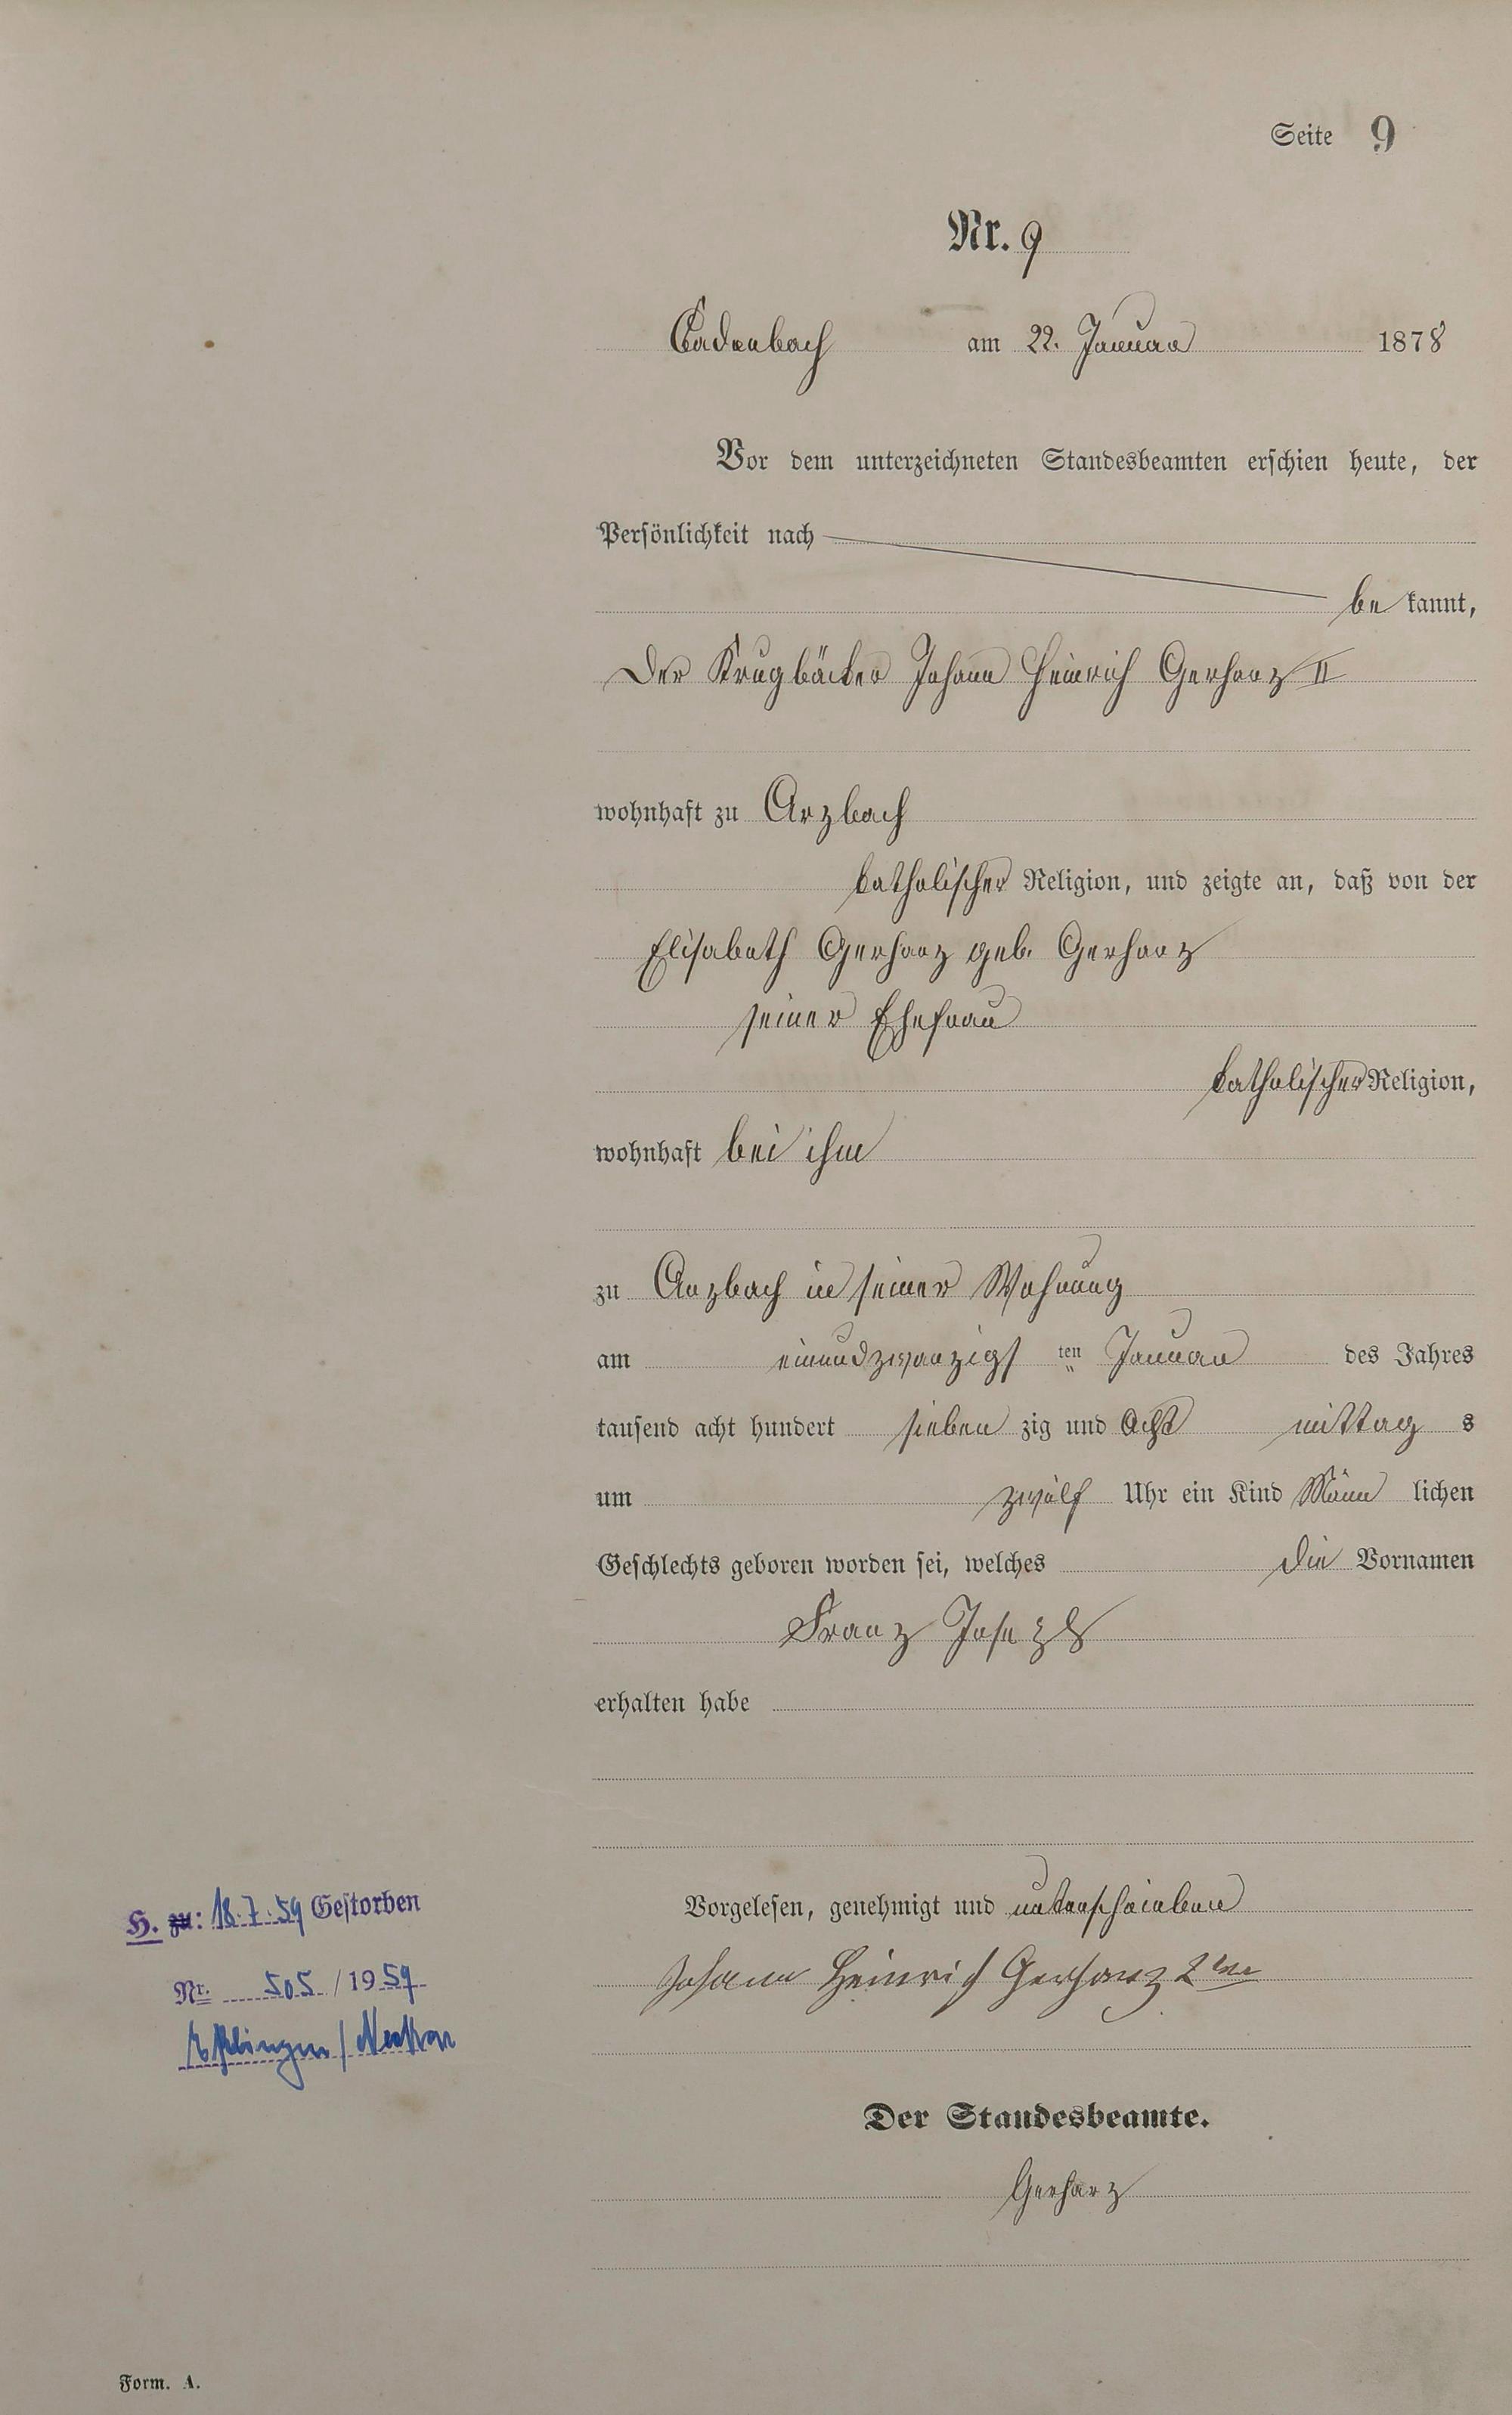 Seite 9
Nr. 9
Cadenbach am 22. Januar 1878
Vor dem unterzeichneten Standesbeamten erschien heute, der
Persönlichkeit nach
be kannt,
Der Krugbäcker Johann Heinrich Gerharz II
wohnhaft zu Arzbach
katholischer Religion, und zeigte an, daß von der
Elisabeth Gerharz geb. Gerharz
seiner Ehefrau
katholischer Religion,
wohnhaft bei ihm
zu Arzbach in seiner Wohnung
am einundzwanzigs ten Januar des Jahres
tausend acht hundert sieben zig und Acht mittag s
um zwölf Uhr ein Kind Männ lichen
Geschlechts geboren worden sei, welches die Vornamen
Franz Joseph
erhalten habe
Vorgelesen, genehmigt und unterschrieben
Johann Heinrich Gerharz 2ter
Der Standesbeamte.
Gerharz
H. zu: 18.7.59 Gestorben
Nr. 505 / 1959
Eßlingen / Neckar
Form. A.